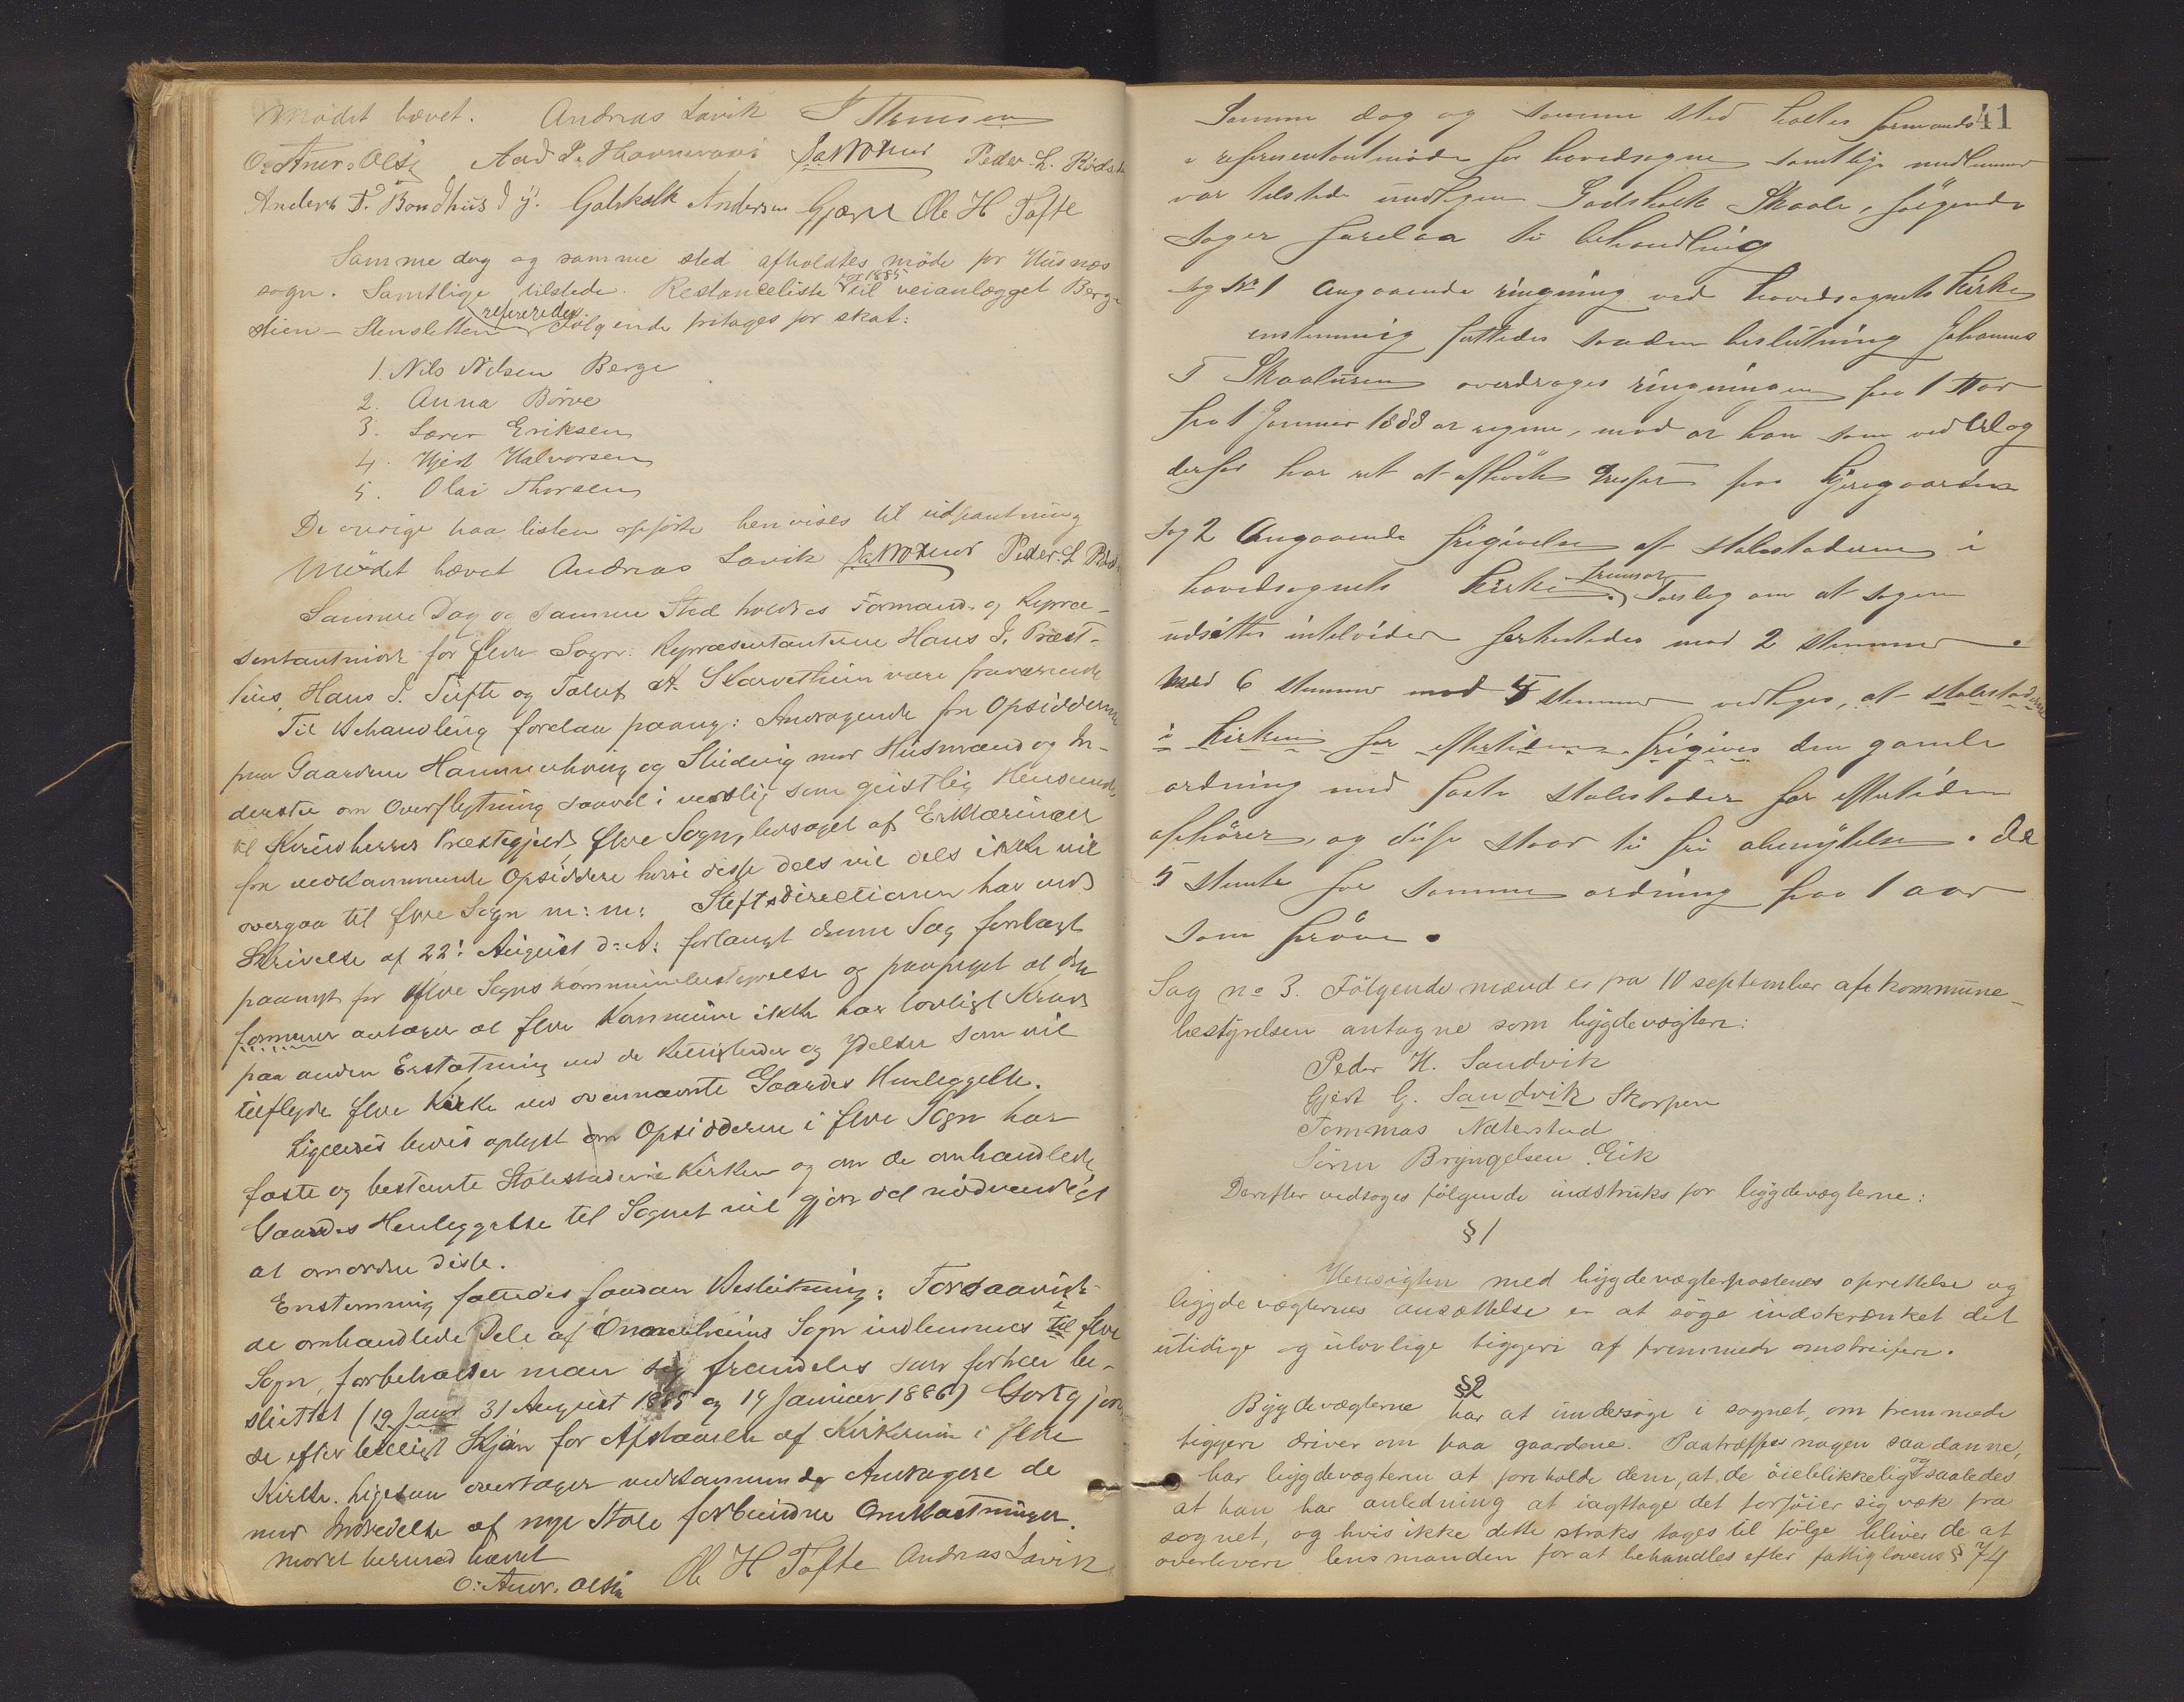 Mødet hævet. Andreas Lavik
Peder L.
Anders T. Bondhus Godskalk Andersen Gjærde Ole H Tofte
Samme dag og samme sted afholdtes møde for Husnæs
sogn. Samtlige tilstede. Restanceliste for 1885 til veianlægget Berge
stien - Stensletten refereredes. Følgende fritages for skat:
1. Nils Nilsen Berge
2. Anna Børve
3. Lærer Eriksen
4. Gjert Halvorsen
5. Olai Thorsen
De øvrige paa listen opførte henvises til udpantning
Mødet hævet Andreas Lavik Peder L
Samme Dag og samme Sted holdtes Formand- og Repræ-
sentantmøde for Ølve Sogn. Repræsentanterne Hans J. Præst-
hus, Hans J. Tufte og Tolluf A. Skarvatun vare fraværende
Til Behandling forelaa paany: Andragende fra Opsidderne
paa Gaardene Hammerhoug og med Husmænd og In-
derster om Overflytning saavel i verdslig som geistlig Henseende
til Kvindherreds Præstegjeld, Ølve Sogn, ledsaget af Erklæringer
fra vedkommende Opsiddere hvori disse dels vil dels ikke vil
overgaa til Ølve Sogn m: m: Stiftsdirectionen har ved
Skrivelse af 22: August d: A: forlangt denne Sag forelagt
paanyt for Ølve Sogns Kommunebestyrelse og paapeget at den
formener antager at Ølve Kommune ikke har lovligt Krav
paa anden Erstatning end de Rettigheder og Ydelser som vil
tilflyde Ølve Kirke ved ovennævnte Gaardes Henleggelse.
Ligeledes bedes oplyst om Opsidderne i Ølve Sogn har
faste og bestemte Stolestader i Kirken og om de omhandlede
Gaardes Henleggelse til Sognet vil gjøre det nødvendigt
at omordne disse.
Enstemmig fattedes saadan Beslutning: Forsaavidt
de omhandlede Dele af Sogn indlemmes til Ølve
Sogn, forbeholder man sig fremdeles som forhen be-
sluttet (19 Janr 31 August 1885 og 14 Januar 1886) Godtgjørel-
se efter lovligt Skjøn for Afstaaelse af Kirkerum i Ølve
Kirke. Ligesom overtager vedkommende Andragere de
med Indredelse af nye Stole forbundne Omkostninger.
Mødet hermed hævet
Ole H Tofte Andreas Lavik
41
Samme dag og samme sted holdtes formands
& repræsentantmøde for hovedsognet samtlige medlemmer
var tilstede undtagen Godskalk Skaale, følgende
sager forelaa til behandling
Sag No 1 Angaaende ringning ved hovedsognets Kirke
enstemmig fattedes saadan beslutning Johannes
T Skaalusen overdrages ringningen paa 1 aar
fra 1 Januar 1888 at regne, mod at han som vederlag
derfor har ret at afhøste græsset paa Kirkegaarden
Sag 2 Angaaende frigivelse af stolestaderne i
hovedsognets Kirke. fremsat Forslag om at sagen
udsættes indtilvidere forkastedes mod 2 stemmer.
Med 6 stemmer mod 5 stemmer vedtoges, at stolestaderne
i Kirken for eftertiden frigives den gamle
ordning med faste stolestader for eftertiden
ophører, og disse staar til fri afbenyttelse. De
5 stemte for samme ordning paa 1 aar
som prøve.
Sag no 3. Følgende mænd er fra 10 september af kommune-
bestyrelsen antagne som bygdevægtere:
Peder H. Sandvik
Gjert G. Sandvik Skorpen
Tommas Næterstad
Søren Bryngelsen Eik
Derefter vedtoges følgende indstruks for bygdevægterne:
§ 1
Hensigten med bygdevægterpostenes oprettelse og
bygdevægternes ansættelse er at søge indskrænket det
utidige og ulovlige tiggeri af fremmede omstreifere.
§2
Bygdevægterne har at undersøge i sognet, om fremmede
tiggere driver om paa gaardene. Paatræffes nogen saadanne,
har bygdevægteren at foreholde dem, at de øieblikkeligt og saaledes
at han har anledning at iagttage det forføier sig væk fra
sognet, og hvis ikke dette straks tages til følge bliver de at
overlevere lensmanden for at behandles efter fattiglovens § 74